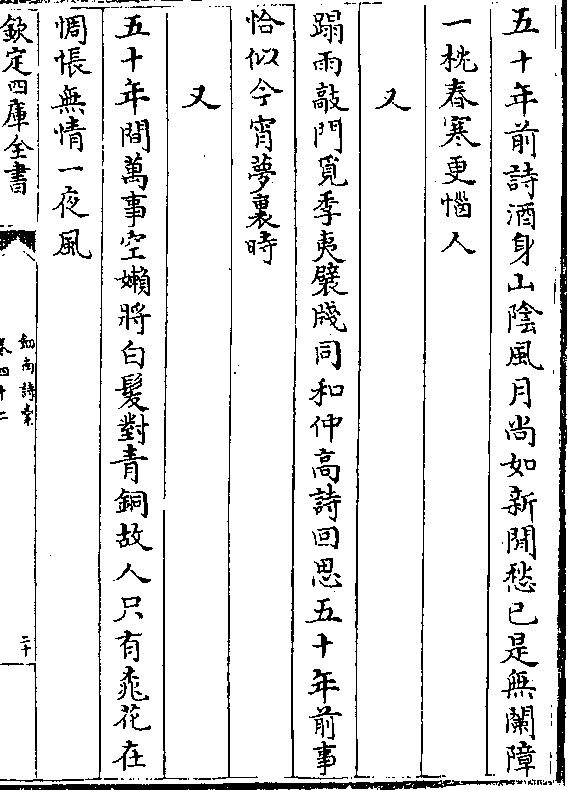 五十年前詩酒身山陰風月尚如新閒愁已是無闌障
一枕春寒更惱人
又
蹋雨敲門覓季夷襞牋同和仲高詩回思五十年前事
恰似今宵夢裏時
又
五十年間萬事空嬾將白髮對青銅故人只有桃花在
惆悵無情一夜風
欽定四庫全書
劔南詩藁
卷四十二
二十